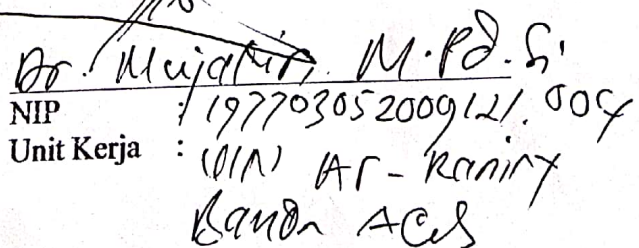 Dr. Mujakir, M.Pd.Si
NIP : 197703052009121.004
Unit Kerja : UIN Ar-Raniry
Banda Aceh